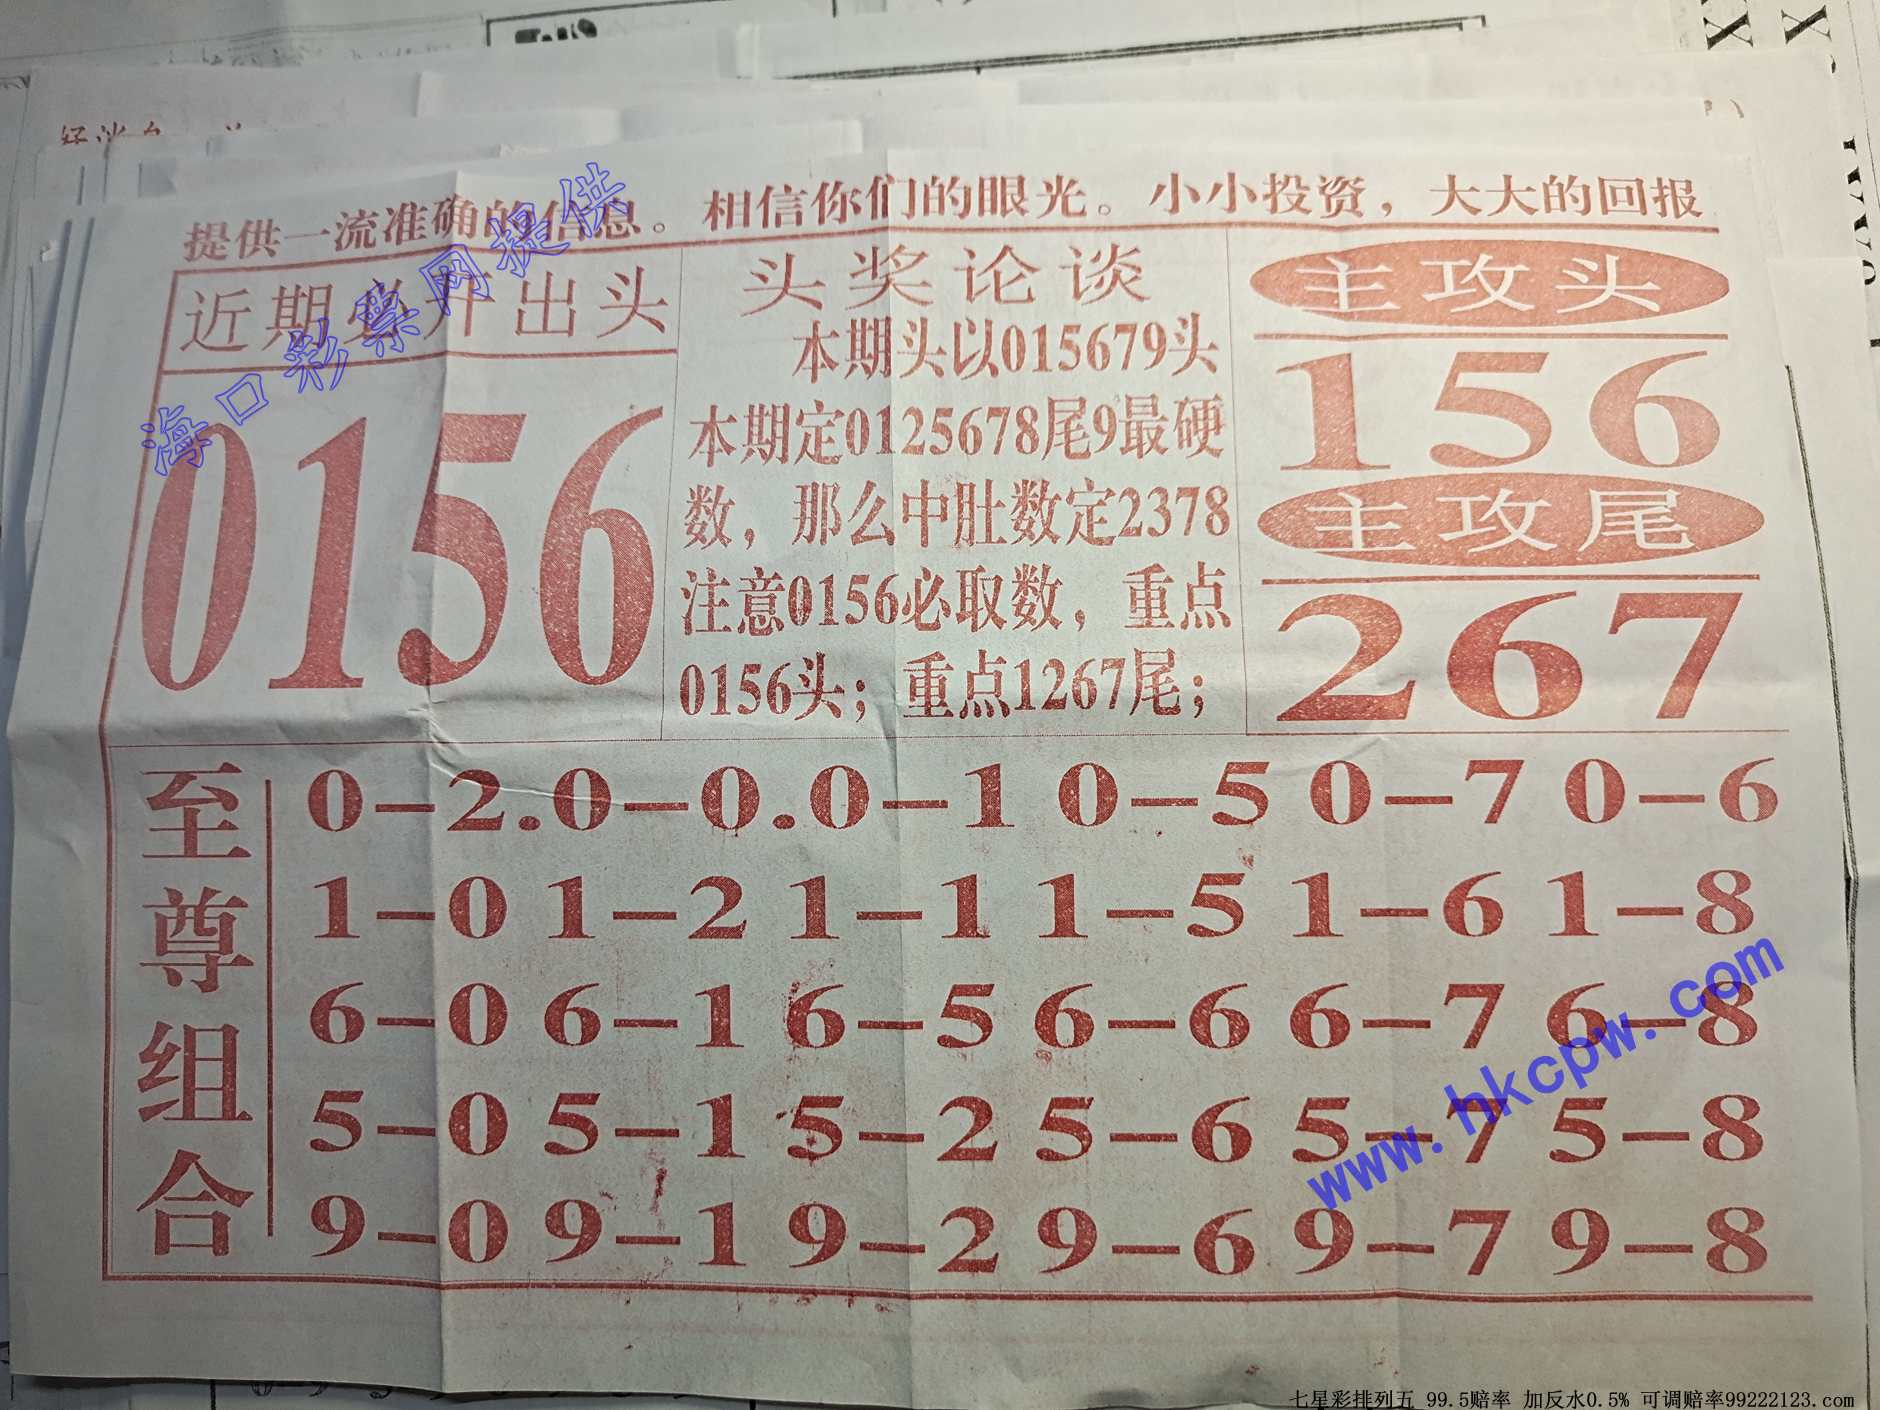 提供一流准确的信息。相信你们的眼光。小小投资，大大的回报
近期必开出头
0156
头奖论谈
本期头以015679头
本期定0125678尾9最硬
数，那么中肚数定2378
注意0156必取数，重点
0156头；重点1267尾；
主攻头
156
主攻尾
267
至尊组合
0-2.0-0.0-1 0-5 0-7 0-6
1-0 1-2 1-1 1-5 1-6 1-8
6-0 6-1 6-5 6-6 6-7 6-8
5-0 5-1 5-2 5-6 5-7 5-8
9-0 9-1 9-2 9-6 9-7 9-8
海口彩票网提供
www.hkcpw.com
七星彩排列五 99.5赔率 加反水0.5% 可调赔率99222123.com